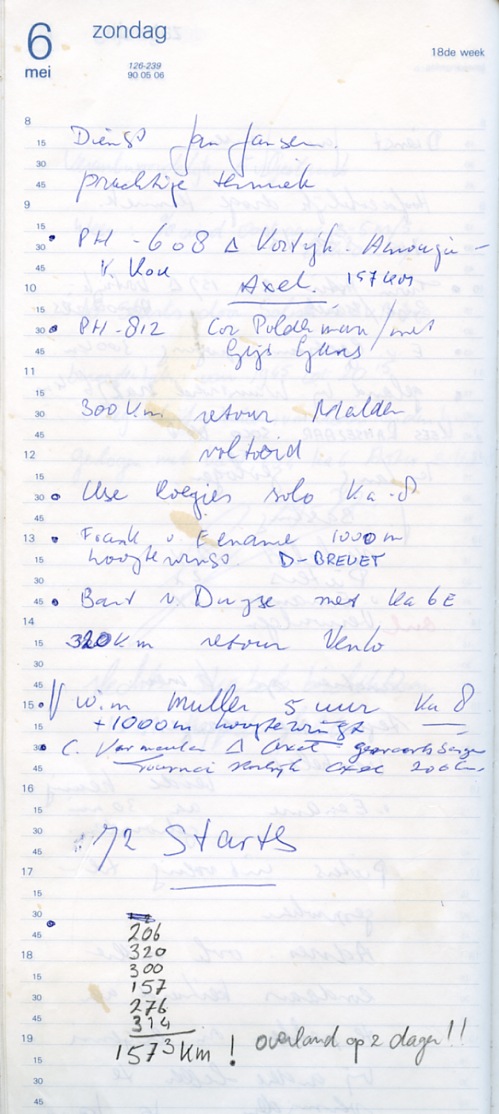 6 zondag
mei
126-239
90 05 06
18de week
8
15
30
45
9
15
30
45
10
15
30
45
11
15
30
45
12
15
30
45
13
15
30
45
14
15
30
45
15
15
30
45
16
15
30
45
17
15
30
45
18
15
30
45
19
15
30
45
Dienst Jan Jansen.
prachtige termiek
PH - 608 Δ Kortrijk -
v. Kou Axel. 157 km
PH - 812 Cor Polderman / met
Gijs
300 Km retour Malden
voltooid
Ilse solo Ka-8
Frank v Eename 1000 m
hoogtewinst. D-BREVET
Bart v. Duyse met Ka 6E
320 Km retour Venlo
Wim Muller 5 uur Ka 8
+ 1000m hoogtewinst
C. Vermeulen Δ Axel geraardsbergen
Tournai Kortrijk Axel 206 km
72 Starts
206
320
300
157
276
314
1573 Km ! overland op 2 dagen!!